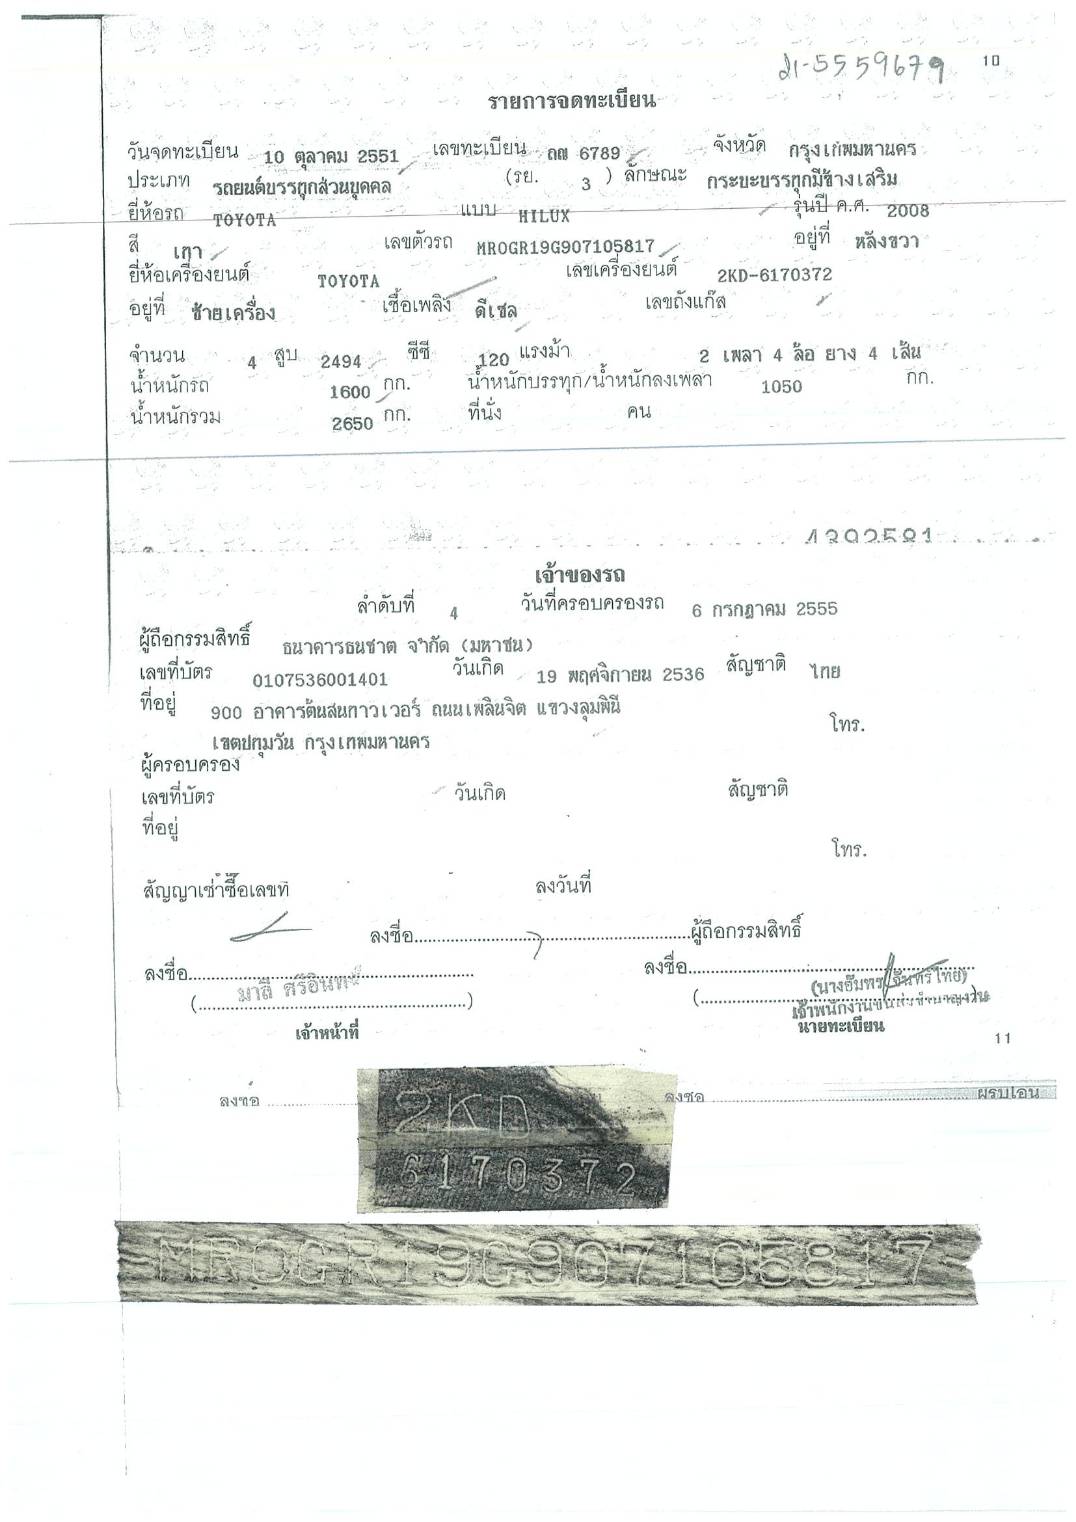 21-5559679 10
รายการจดทะเบียน
วันจดทะเบียน 10 ตุลาคม 2551 เลขทะเบียน ถฌ 6789 จังหวัด กรุงเทพมหานคร
ประเภท รถยนต์บรรทุกส่วนบุคคล (รย. 3 ) ลักษณะ กระบะบรรทุกมีข้างเสริม
ยี่ห้อรถ TOYOTA แบบ HILUX รุ่นปี ค.ศ. 2008
สี เทา เลขตัวรถ MROGR19G907105817 อยู่ที่ หลังขวา
ยี่ห้อเครื่องยนต์ TOYOTA เลขเครื่องยนต์ 2KD-6170372
อยู่ที่ ซ้ายเครื่อง เชื้อเพลิง ดีเซล เลขถังแก๊ส
จำนวน 4 สูบ 2494 ซีซี 120 แรงม้า 2 เพลา 4 ล้อ ยาง 4 เส้น
น้ำหนักรถ 1600 กก. น้ำหนักบรรทุก/น้ำหนักลงเพลา 1050 กก.
น้ำหนักรวม 2650 กก. ที่นั่ง คน
4392581
เจ้าของรถ
ลำดับที่ 4 วันที่ครอบครองรถ 6 กรกฎาคม 2555
ผู้ถือกรรมสิทธิ์ ธนาคารธนชาต จำกัด (มหาชน)
เลขที่บัตร 0107536001401 วันเกิด 19 พฤศจิกายน 2536 สัญชาติ ไทย
ที่อยู่ 900 อาคารต้นสนทาวเวอร์ ถนนเพลินจิต แขวงลุมพินี
โทร.
เขตปทุมวัน กรุงเทพมหานคร
ผู้ครอบครอง
เลขที่บัตร วันเกิด สัญชาติ
ที่อยู่
โทร.
สัญญาเช่าซื้อเลขที่ ลงวันที่
ลงชื่อ ผู้ถือกรรมสิทธิ์
ลงชื่อ ลงชื่อ
(มาลี ศรีอินทร์) (นางอัมพร จันทร์ไทย)
เจ้าพนักงานขนส่งชำนาญงาน
เจ้าหน้าที่ นายทะเบียน
11
ลงชื่อ ลงชื่อ ผู้รับโอน
2KD
6170372
MROGR19G907105817